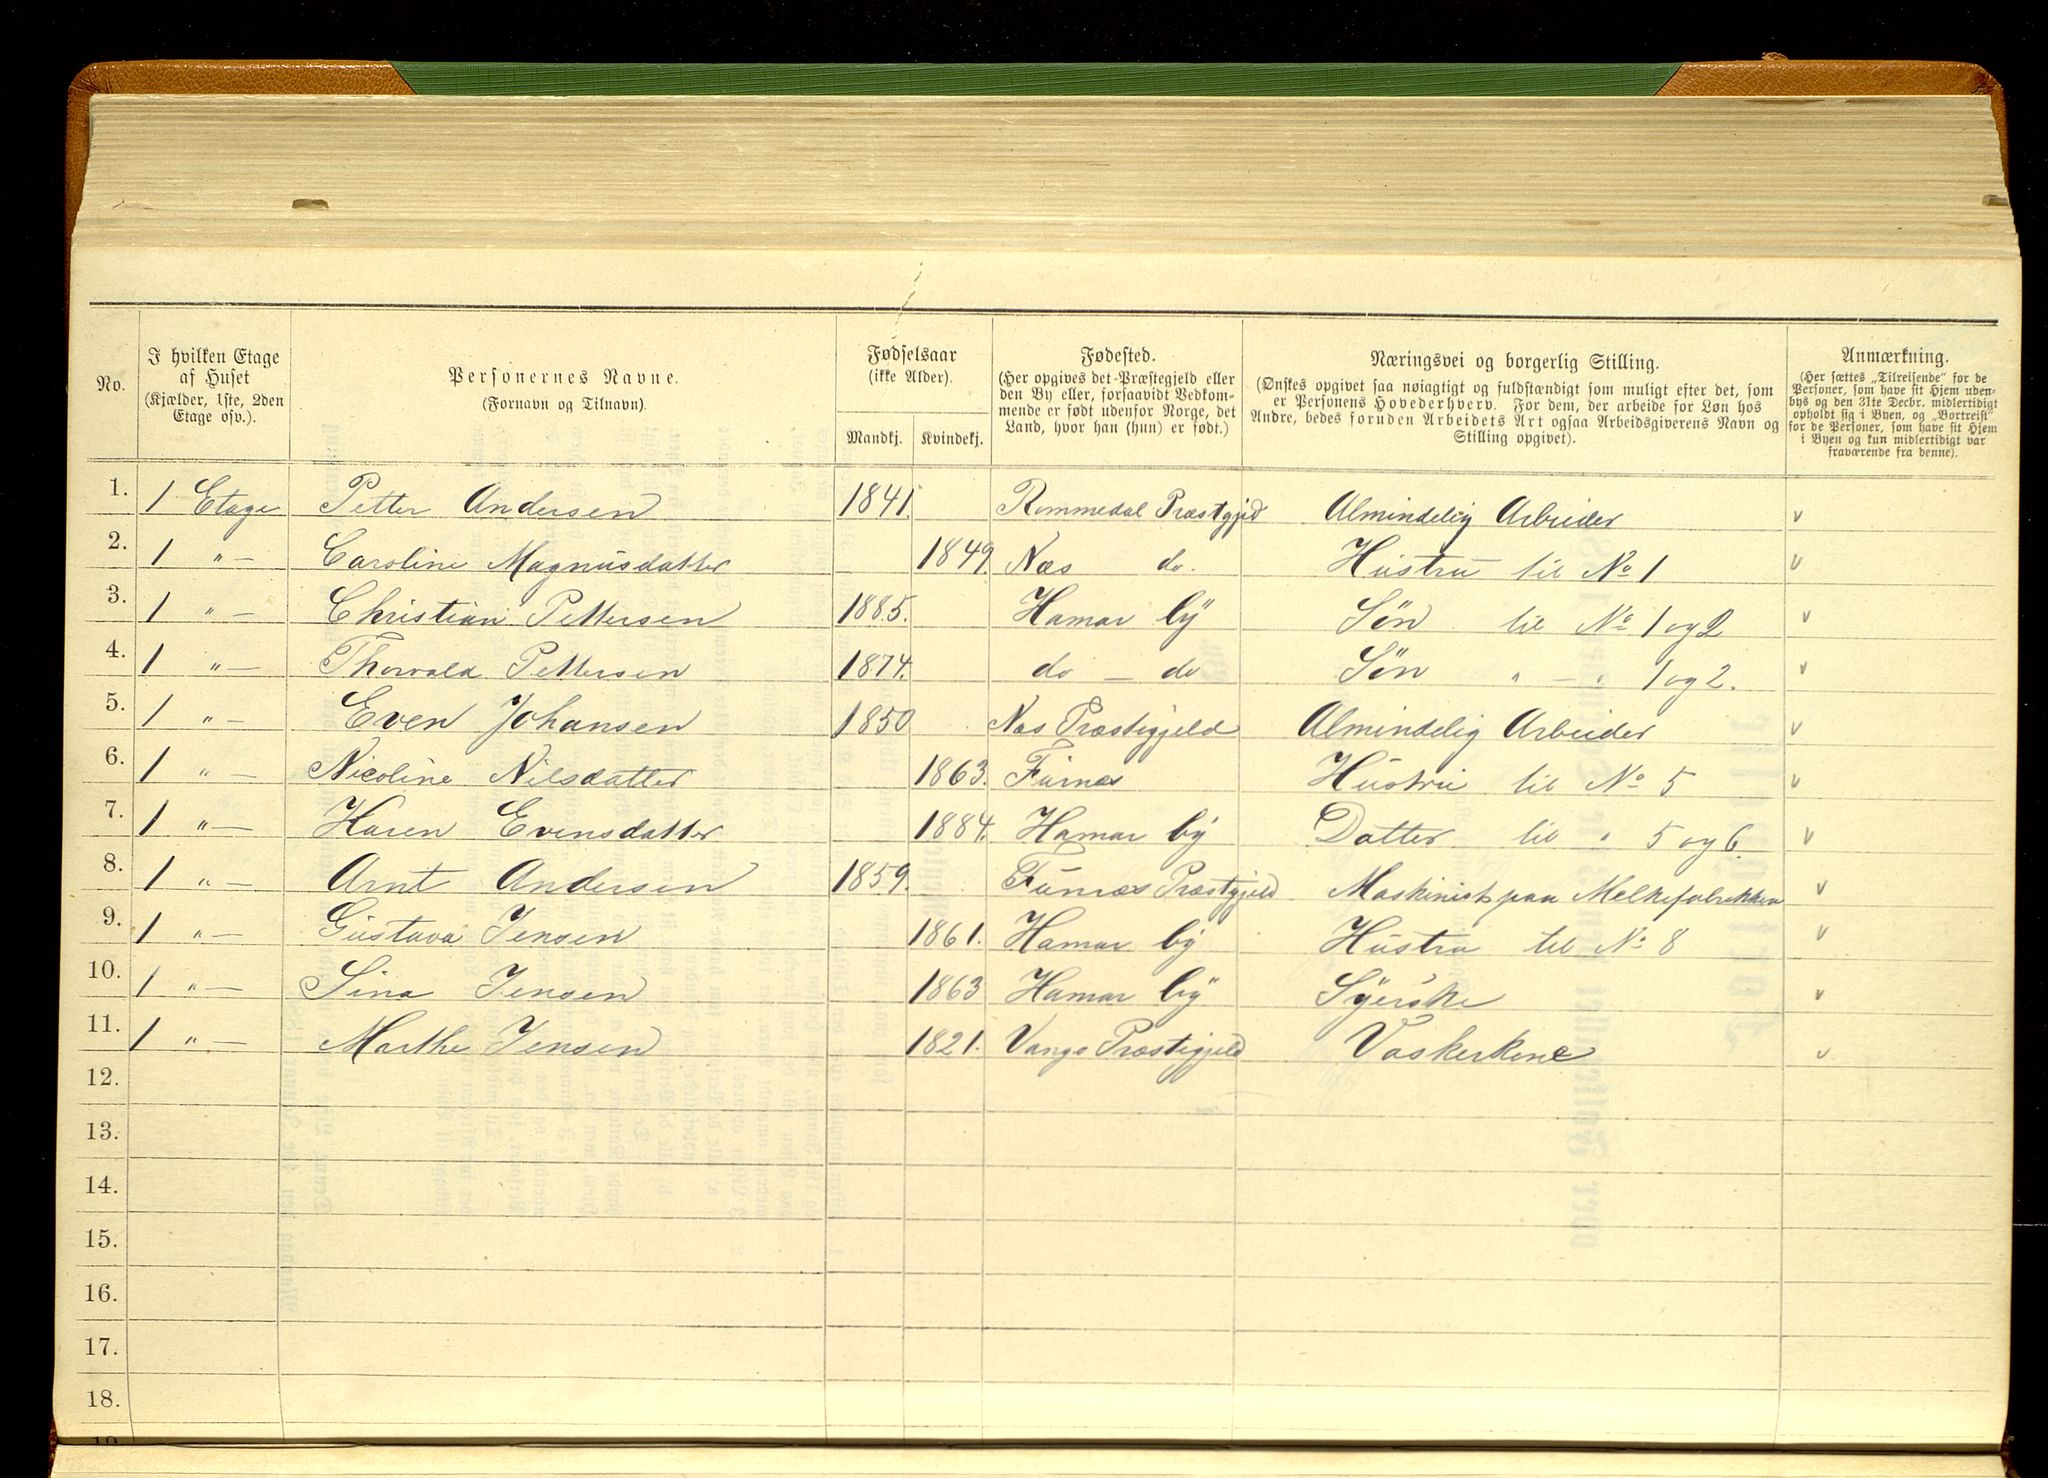 No.
I hvilken Etage
af Huset
(Kjælder, 1ste, 2den
Etage osv.).
Personernes Navne.
(Fornavn og Tilnavn).
Fødselsaar
(ikke Alder).
Mandkj.
Kvindekj.
Fødested.
(Her opgives det Præstegjeld eller
den By eller, forsaavidt Vedkom-
mende er født udenfor Norge, det
Land, hvor han (hun) er født.)
Næringsvei og borgerlig Stilling.
(Ønskes opgivet saa nøiagtigt og fuldstændigt som muligt efter det, som
er Personens Hovederhverv. For dem, der arbeide for Løn hos
Andre, bedes foruden Arbeidets Art ogsaa Arbeidsgiverens Navn og
Stilling opgivet).
Anmærkning.
(Her sættes „Tilreisende“ for de
Personer, som have sit Hjem uden-
bys og den 31te Decbr. midlertidigt
opholdt sig i Byen, og „Bortreist“
for de Personer, som have sit Hjem
i Byen og kun midlertidigt var
fraværende fra denne).
1. 1 Etage Petter Andersen 1841. Rommedal Præstgjed Almindelig Arbeider v
2. 1 „ — Caroline Magnusdatter 1849. Næs do. Hustru til No 1 v
3. 1 „ — Christian Pettersen 1885. Hamar by Søn til No 1 og 2 v
4. 1 „ — Thorvald Pettersen 1874. do — do Søn „ — „ 1 og 2. v
5. 1 „ — Even Johansen 1850 Næs Præstigjeld Almindelig Arbeider v
6. 1 „ — Nicoline Nilsdatter 1863. Furnæs Hustru til No 5 v
7. 1 „ — Karen Evensdatter 1884. Hamar by Datter til „ 5 og 6. v
8. 1 „ — Arnt Andersen 1859. Furnæs Præstgjeld Maskinist paa Melkefabrikken v
9. 1 „ — Gustava Jensen 1861. Hamar by Hustru til No 8 v
10. 1 „ — Sina Jensen 1863 Hamar by Syerske v
11. 1 „ — Marthe Jensen 1821. Vangs Præstigjeld Vaskerkone v
12.
13.
14.
15.
16.
17.
18.
19.